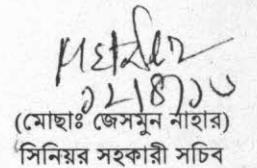 ১২/৪/১০
(মোছাঃ জেসমুন নাহার)
সিনিয়র সহকারী সচিব